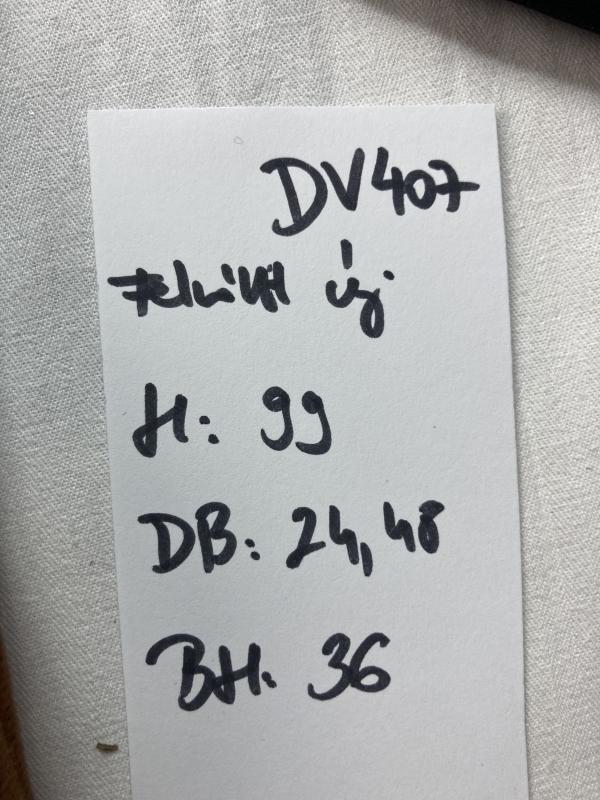 DV407
új
H: 99
DB: 24,48
BH: 36